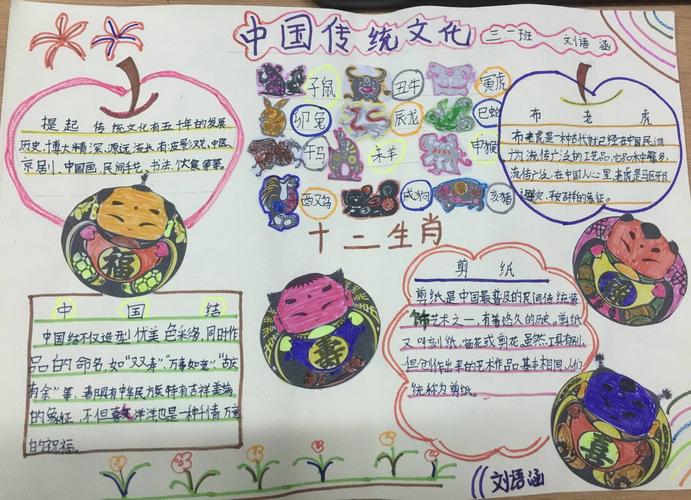 中国传统文化
三二班 刘语涵
提起 传统文化有五千年的发展
历史,博大精深,源远流长,有皮影戏、中医、
京剧、中国画、民间手艺、书法、饮食等等。
子鼠
丑牛
寅虎
卯兔
辰龙
巳蛇
午马
未羊
申猴
酉鸡
戌狗
亥猪
十二生肖
布老虎
布老虎是一种古代就已经在中国民间
流传广泛的工艺品,它品种繁多
流传广泛,在中国人心里,老虎是驱邪
和吉祥的象征。
福
寿
喜
中国结
中国结不仅造型优美色彩
品的命名,如"双寿","万事如意","
有余"等,
的象征,
的祝福。
剪纸
剪纸是中国最普及的民间传统装
饰艺术之一,有着悠久的历史。剪纸
又叫刻纸、窗花或剪花。虽然工具有别,
但创作出来的艺术作品基本相同,人们
统称为剪纸。
刘语涵